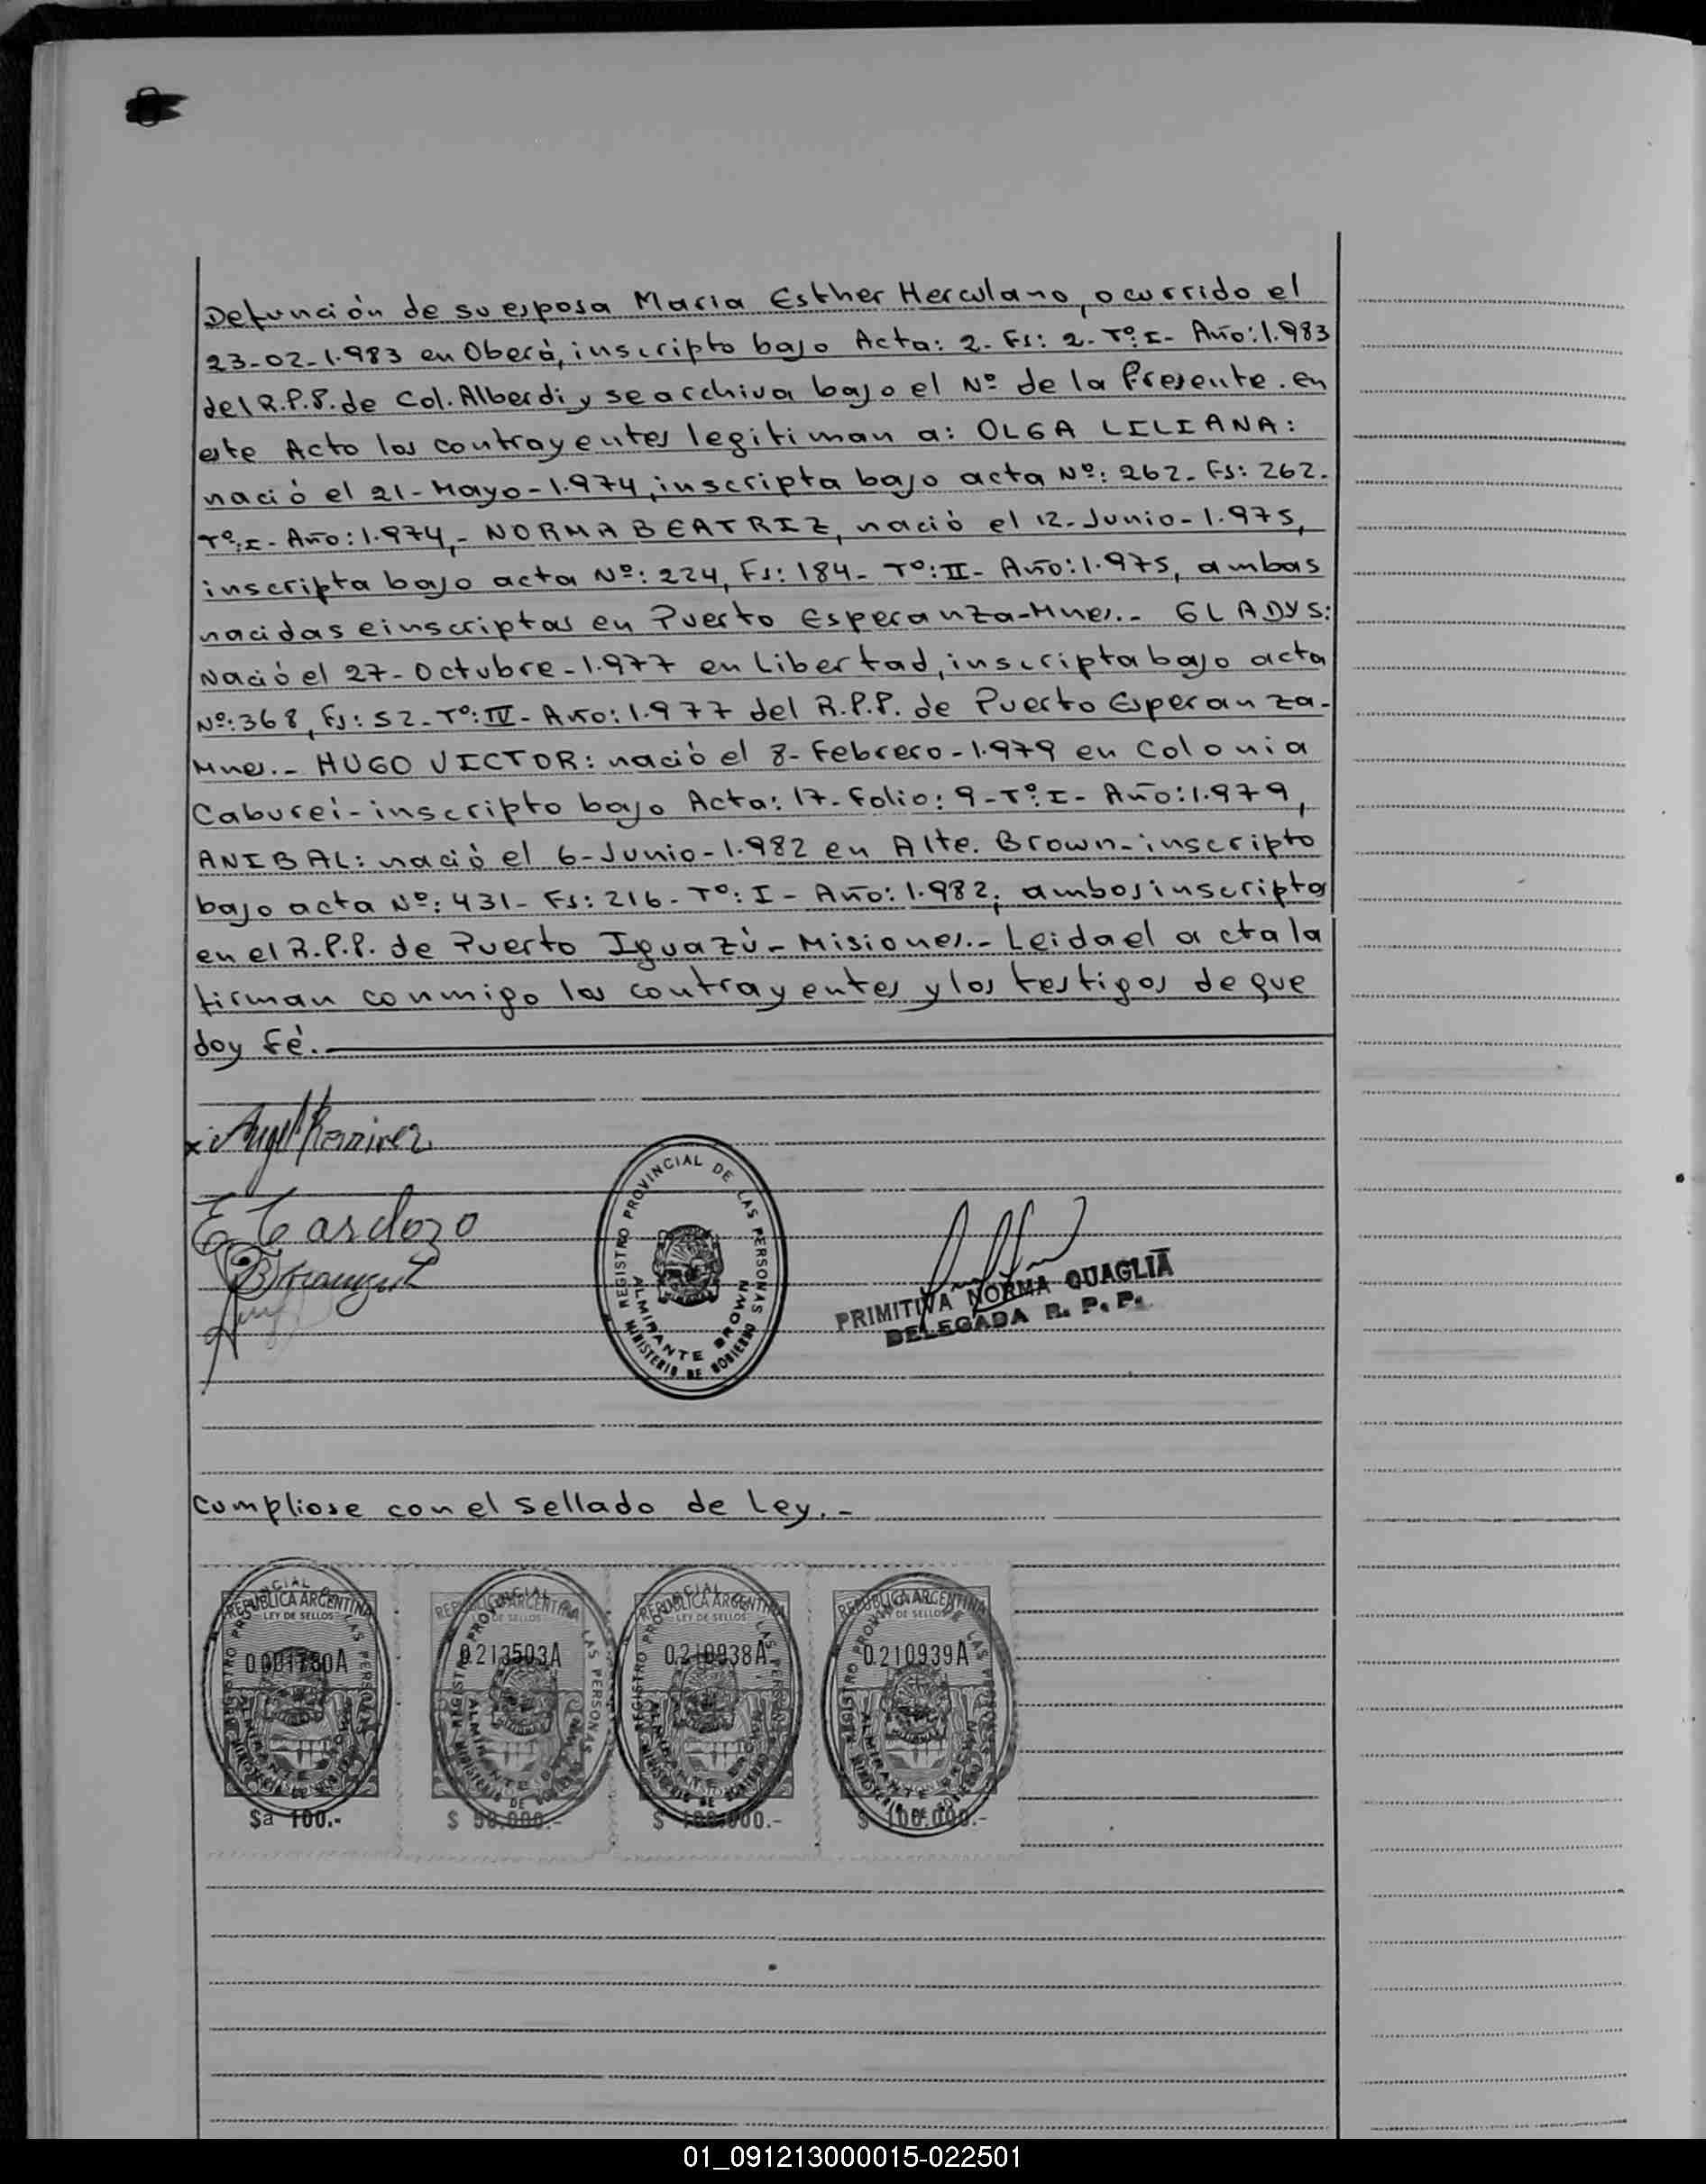 Defunción de su esposa Maria Esther Herculano, ocurrido el
23-02-1.983 en Oberá, inscripto bajo Acta: 2- Fs: 2- Tº: I- Año: 1.983
del R.P.P. de Col. Alberdi y se archiva bajo el Nº de la Presente. en
este Acto los contrayentes legitiman a: OLGA LILIANA:
nació el 21-Mayo-1.974, inscripta bajo acta Nº: 262- Fs: 262-
Tº: I- Año: 1.974,- NORMA BEATRIZ, nació el 12-Junio-1.975,
inscripta bajo acta Nº: 224, Fs: 184- Tº: II- Año: 1.975, ambas
nacidas e inscriptas en Puerto Esperanza-Mnes.- GLADYS:
Nació el 27-Octubre-1.977 en Libertad, inscripta bajo acta
Nº: 368, Fs: 52- Tº: IV- Año: 1.977 del R.P.P. de Puerto Esperanza-
Mnes.- HUGO VICTOR: nació el 8-Febrero-1.979 en Colonia
Caburei-inscripto bajo Acta: 17- Folio: 9- Tº: I- Año: 1.979,
ANIBAL: nació el 6-Junio-1.982 en Alte. Brown-inscripto
bajo acta Nº: 431- Fs: 216- Tº: I- Año: 1.982; ambos inscriptos
en el R.P.P. de Puerto Iguazú-Misiones.- Leida el acta la
firman conmigo los contrayentes y los testigos de que
doy fé.-
x Angel Ramirez
E. Cardozo
REGISTRO PROVINCIAL DE LAS PERSONAS
ALMIRANTE BROWN
MINISTERIO DE GOBIERNO
PRIMITIVA NORMA QUAGLIA
DELEGADA R. P. P.
Cumpliose con el Sellado de Ley.-
REPUBLICA ARGENTINA REPUBLICA ARGENTINA REPUBLICA ARGENTINA REPUBLICA ARGENTINA
LEY DE SELLOS DE SELLOS LEY DE SELLOS DE SELLOS
0.001730A 0.213503A 0.210938A 0.210939A
$a 100.- $ 50.000.- $ 100.000.- $ 100.000.-
01_091213000015-022501